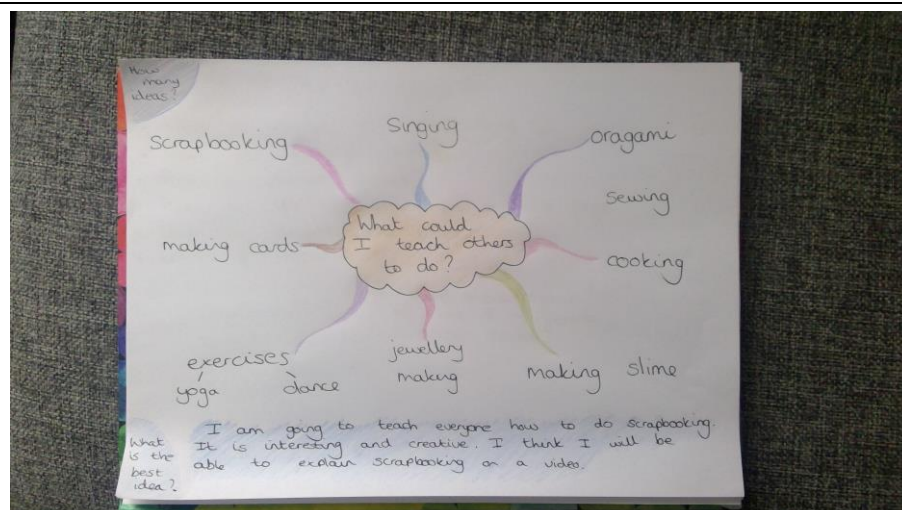 How
many
ideas?
scrapbooking
Singing
oragami
sewing
What could
I teach others
to do?
making cards
cooking
exercises
yoga
dance
jewellery
making
making slime
What
is the
best
idea?
I am going to teach everyone how to do scrapbooking.
It is interesting and creative. I think I will be
able to explain scrapbooking on a video.